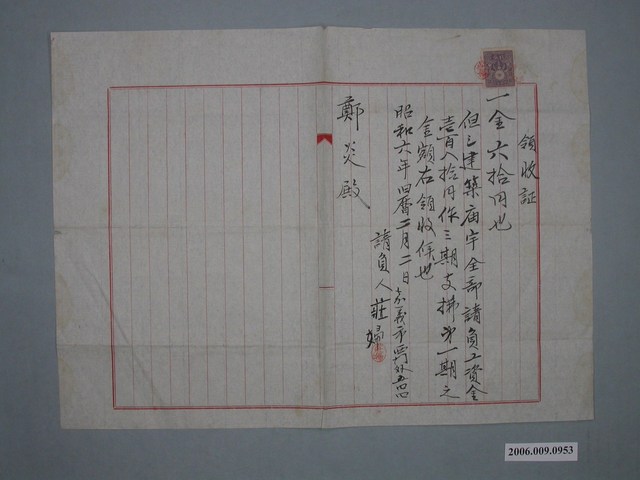 領收証
一金六拾円也
但シ建築庙宇全部請負工資金
壹百八拾円作三期支拂第一期之
金額右領收候也
昭和六年旧曆二月二日
嘉義市西門外
請負人 莊婦
鄭炎殿
2006.009.0953